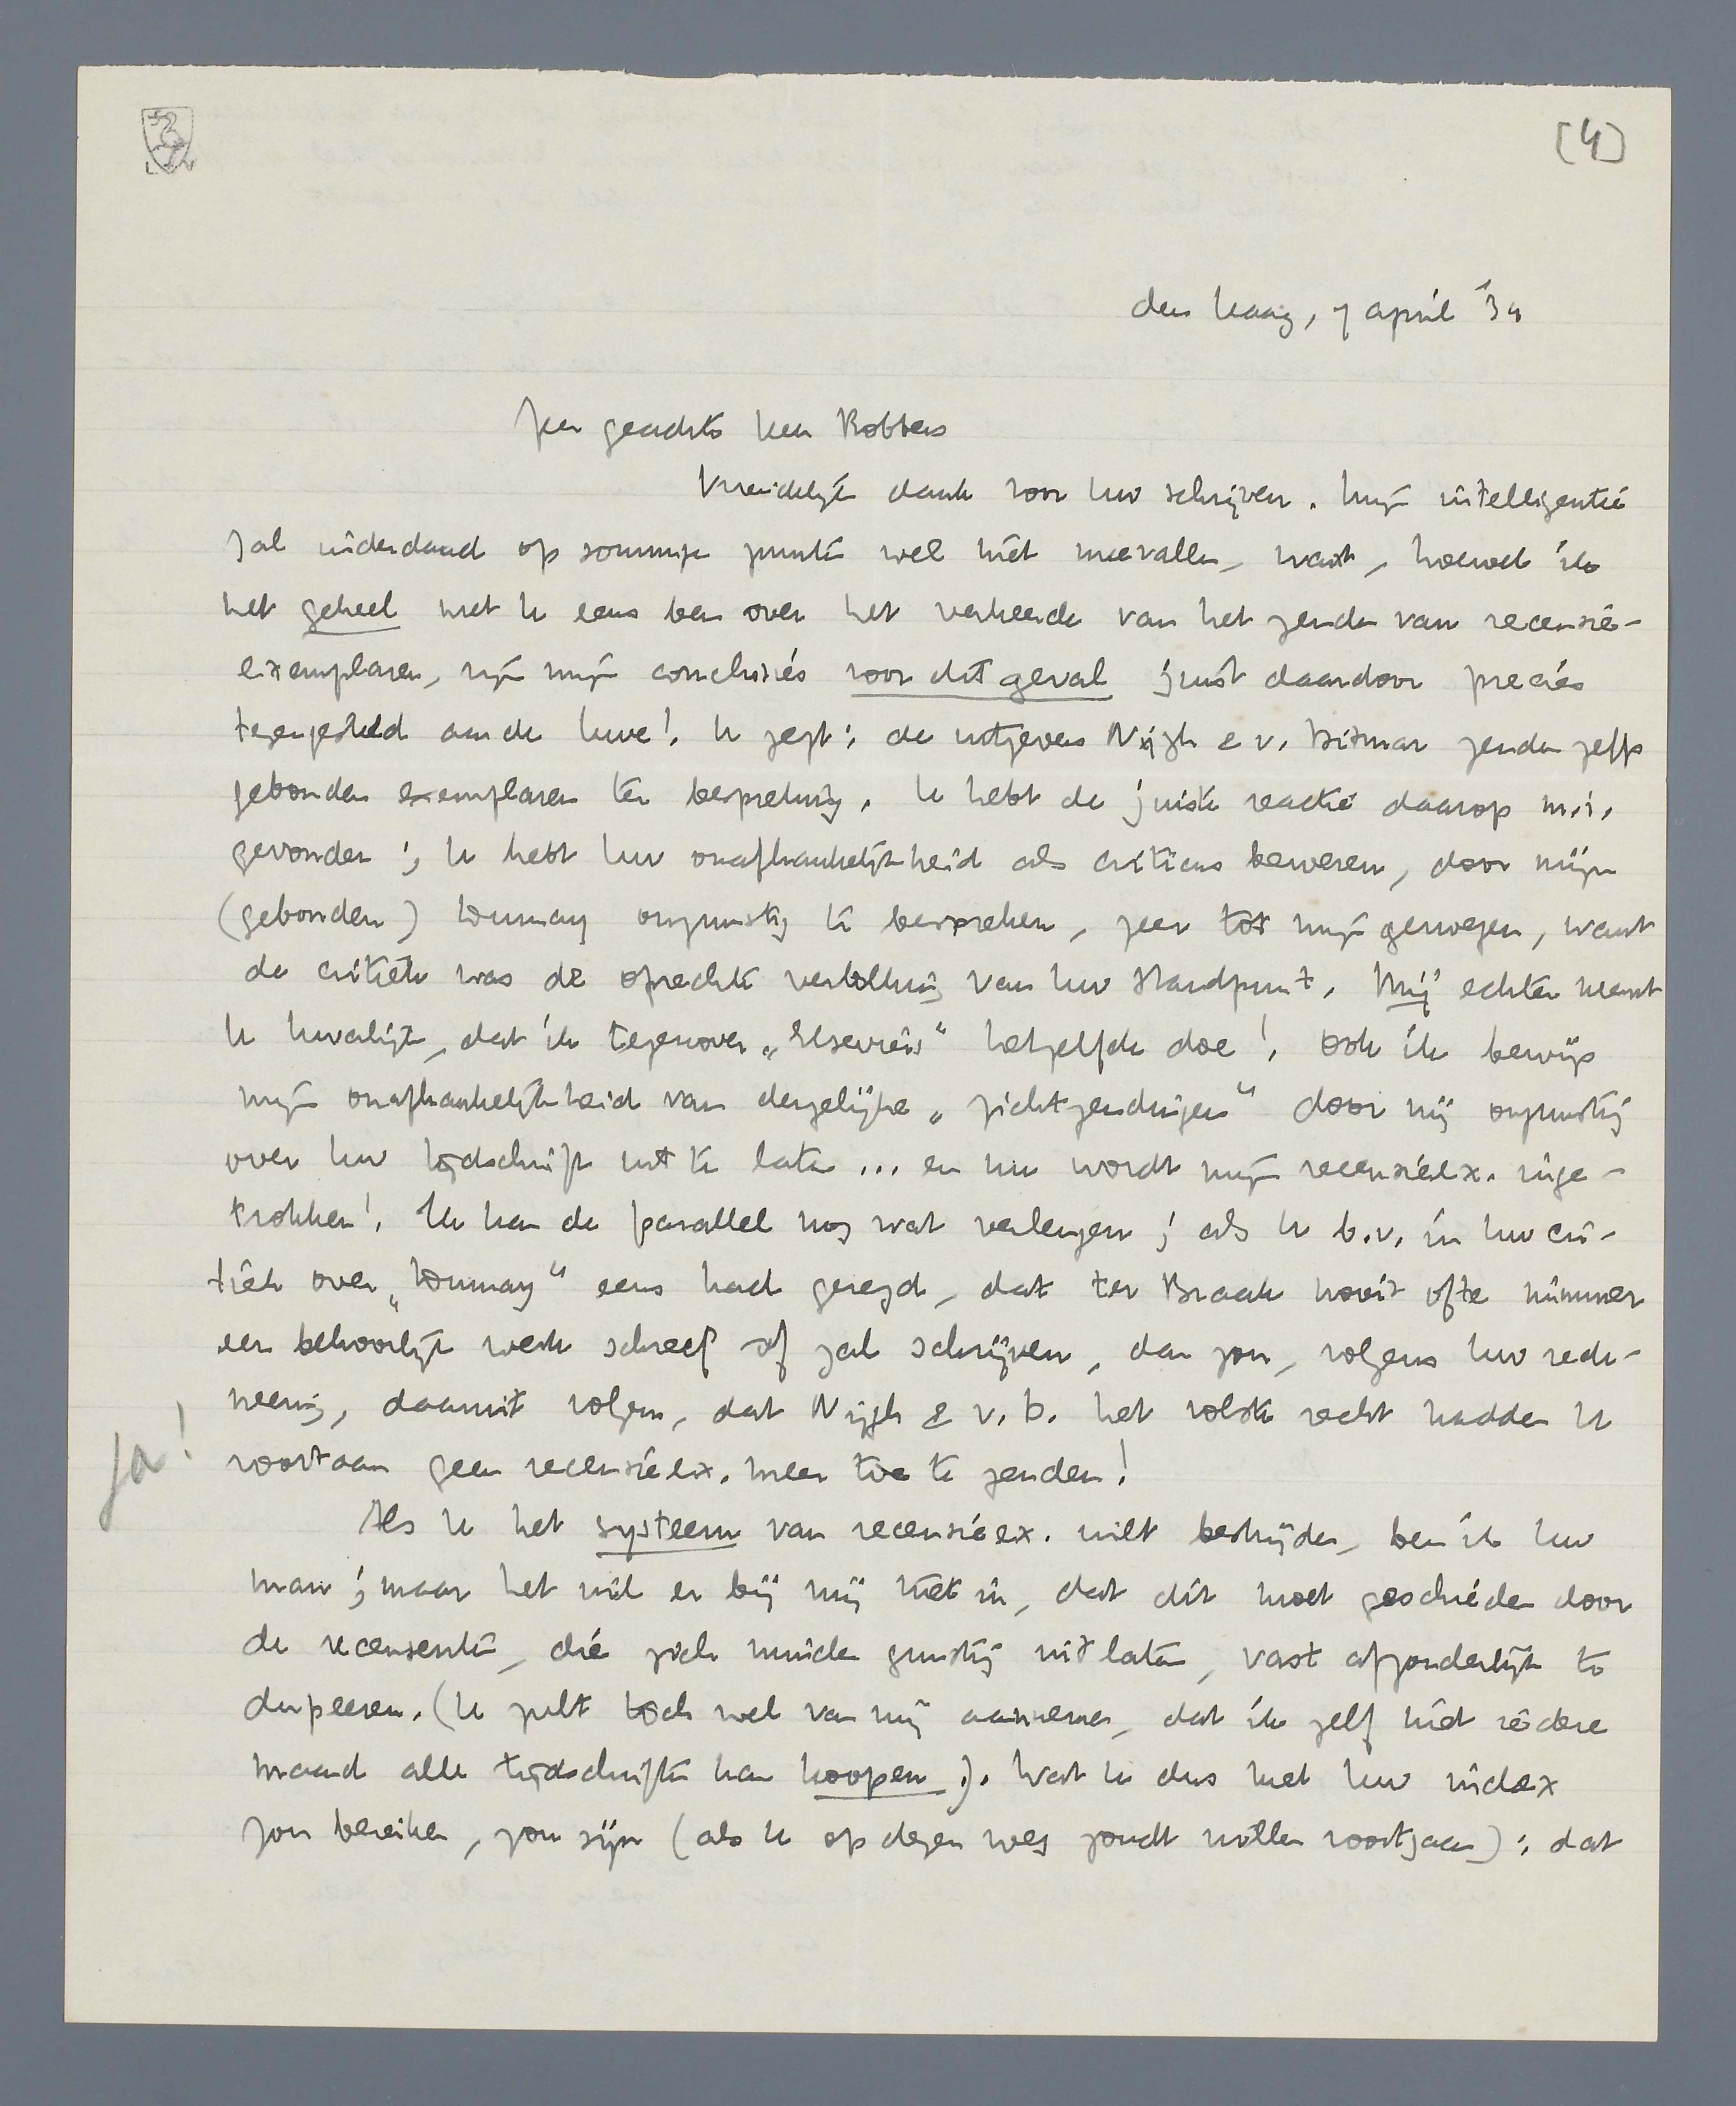 (4)
den Haag, 7 april '34
Zeer geachte heer Robbers
Vriendelijk dank voor Uw schrijven. Mijn intelligentie
zal inderdaad op sommige punten wel niet meevallen, want, hoewel ik
het geheel met U eens ben over het verkeerde van het zenden van recensie-
exemplaren, zijn mijn conclusies voor dit geval juist daardoor precies
tegengesteld aan de Uwe! U zegt: de uitgevers Nijgh e v. Ditmar zenden zelfs
gebonden exemplaren ter bespreking. U hebt de juiste reactie daarop m.i.
gevonden; U hebt Uw onafhankelijkheid als criticus bewezen, door mijn
(gebonden) Dumay ongunstig te bespreken, zeer tot mijn genoegen, want
de critiek was de oprechte vertolking van Uw standpunt. Mij echter neemt
U kwalijk, dat ik tegenover „Elsevier's" hetzelfde doe! Ook ik bewijs
mijn onafhankelijkheid van dergelijke „zichtzendingen" door mij ongunstig
over Uw tijdschrift uit te laten ... en nu wordt mijn recensieëx. inge-
trokken! Ik kan de parallel nog wat verlengen; als U b.v. in Uw cri-
tiek over „Dumay" eens had gezegd, dat ter Braak nooit ofte nimmer
een behoorlijk werk schreef of zal schrijven, dan zou, volgens Uw rede-
neering, daaruit volgen, dat Nijgh & v. D. het volste recht hadden U
voortaan geen recensieëx. meer toe te zenden!
Ja!
Als U het systeem van recensieëx. wilt bestrijden, ben ik Uw
man; maar het wil er bij mij niet in, dat dit moet geschieden door
de recensenten, die zich minder gunstig uitlaten, vast afzonderlijk te
dupeeren. (U zult toch wel van mij aannemen, dat ik zelf niet iedere
maand alle tijdschriften kan koopen!). Wat U dus met Uw index
zou bereiken, zou zijn (als U op dezen weg zoudt willen voortgaan): dat